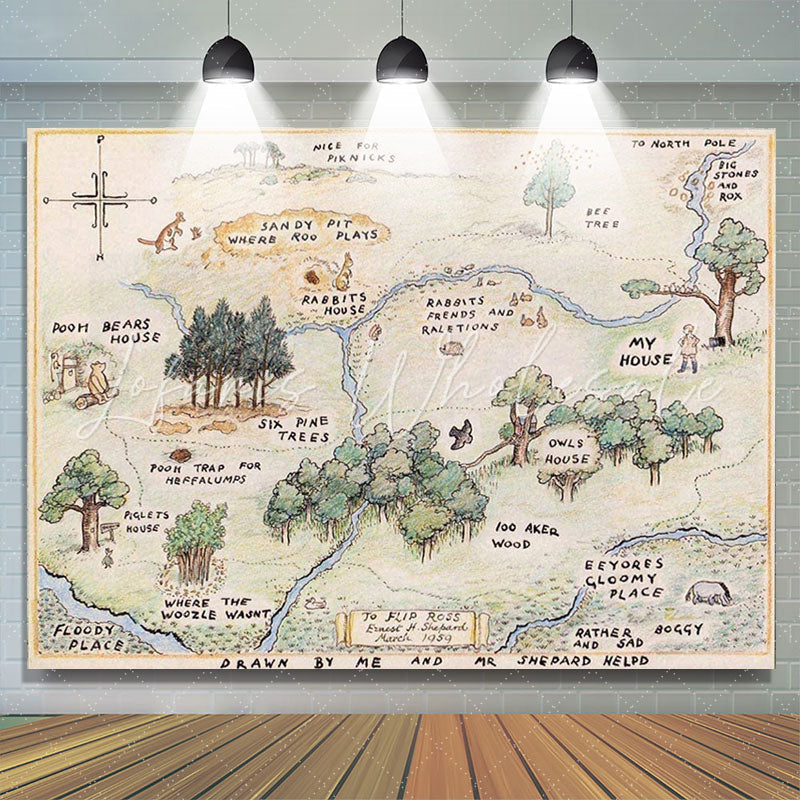 P
N
NICE FOR
PIKNICKS
TO NORTH POLE
BIG
STONES
AND
ROX
BEE
TREE
SANDY PIT
WHERE ROO PLAYS
RABBITS
HOUSE
RABBITS
FRENDS AND
RALETIONS
POOH BEARS
HOUSE
MY
HOUSE
SIX PINE
TREES
OWLS
HOUSE
POOH TRAP FOR
HEFFALUMPS
PIGLETS
HOUSE
100 AKER
WOOD
EEYORES
GLOOMY
PLACE
WHERE THE
WOOZLE WASNT
FLOODY
PLACE
RATHER BOGGY
AND SAD
TO FLIP ROSS
Ernest H. Shepard
March 1959
DRAWN BY ME AND MR SHEPARD HELPD
Wholesale